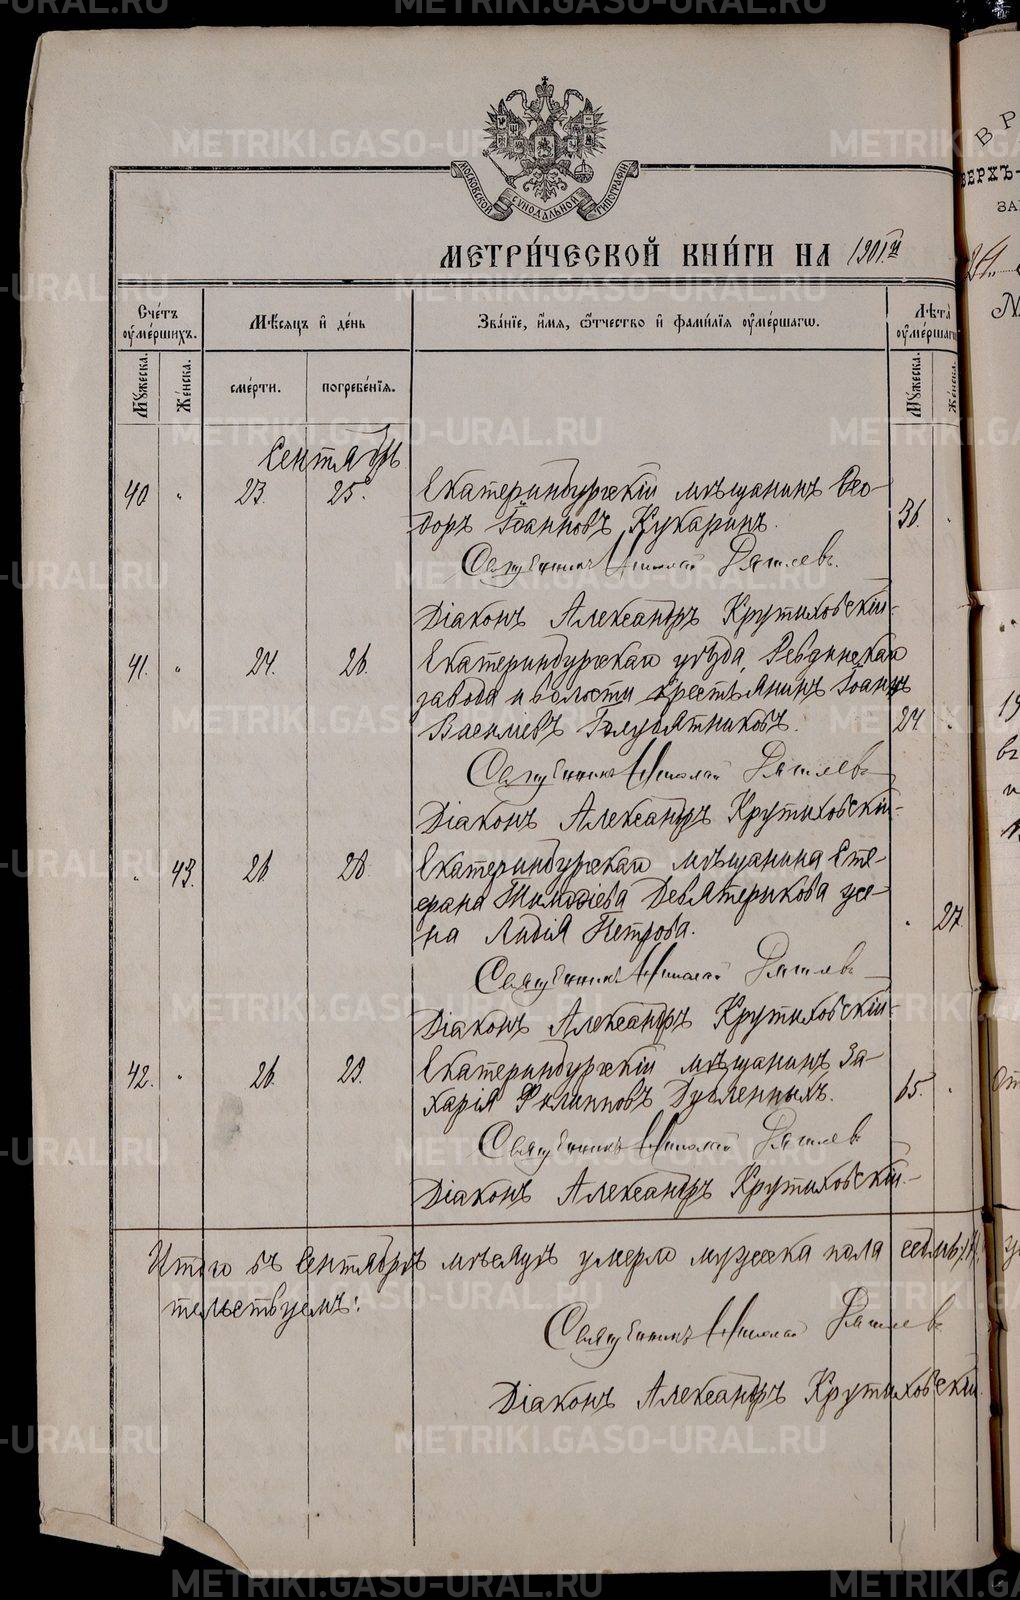 МОСКОВСКОЙ СУНОДАЛЬНОЙ ТИПОГРАФІИ
МЕТРИ́ЧЕСКОЙ КНИ́ГИ НА 1901 й
Сче́тъ оумершихъ.
Мѣсяцъ и де́нь
Зва́нїе, и́мя, ѻ҆́тчество и фами́лїя оуме́ршагѡ.
Лѣта оуме́ршагѡ
Мужеска.
Же́нска.
сме́рти.
погребе́нїя.
Мужеска.
Же́нска.
Сентябрь
40 " 23. 25. Екатеринбургскій мѣщанинъ Ѳео-
доръ Іоанновъ Кукаринъ. 36. "
Священникъ Николай Дягилевъ
Діаконъ Александръ Крутиховскій.
41. " 24. 26. Екатеринбургскаго уѣзда, Ревдинскаго
завода и волости крестьянинъ Іоаннъ
Василіевъ Голубятниковъ. 24. "
Священникъ Николай Дягилевъ
Діаконъ Александръ Крутиховскій.
" 43. 26. 28. Екатеринбургскаго мѣщанина Сте-
фана Тимофіева Девятерикова же-
на Лидія Петрова. " 27.
Священникъ Николай Дягилевъ
Діаконъ Александръ Крутиховскій.
42. " 26. 29. Екатеринбургскій мѣщанинъ За-
харія Филипповъ 65. "
Священникъ Николай Дягилевъ
Діаконъ Александръ Крутиховскій.
Итого въ Сентябрѣ мѣсяцѣ умерло мужеска пола седмь
тельствуемъ:
Священникъ Николай Дягилевъ
Діаконъ Александръ Крутиховскій.
METRIKI.GASO-URAL.RU